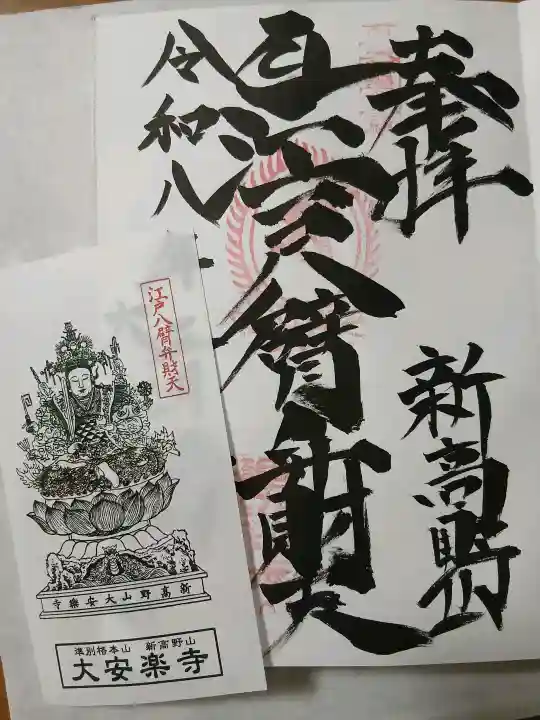 奉拝
新高野山
八臂弁財天
令和八
江戸八臂弁財天
新高野山大安樂寺
準別格本山 新高野山
大安楽寺